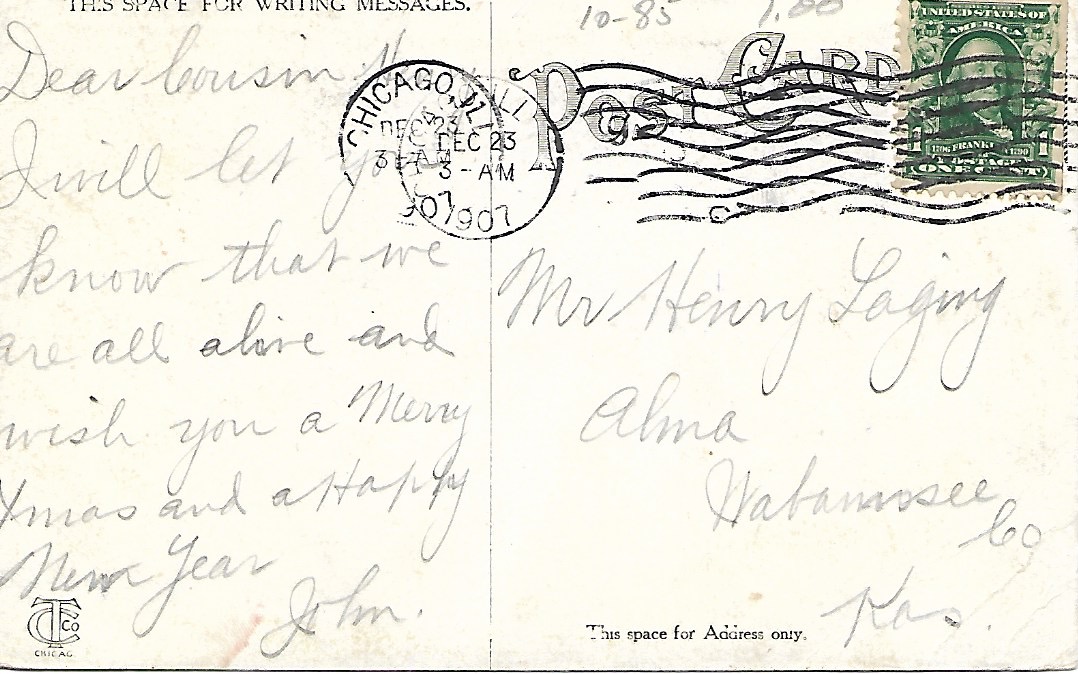 THIS SPACE FOR WRITING MESSAGES.
10-85 1.00
Dear Cousin H
I will let you
know that we
are all alive and
wish you a Merry
Xmas and a Happy
New Year
John.
CTCO
CHICAG
CHICAGO, ILL
DEC 23
3-AM
1907
ILL
DEC 23
3-AM
1907
POST CARD
UNITED STATES OF
AMERICA
1706 FRANKLIN 1790
POSTAGE
1 1
ONE CENT
Mr Henry Laging
Alma
Wabaunssee
Co
Kas.
This space for Address only.